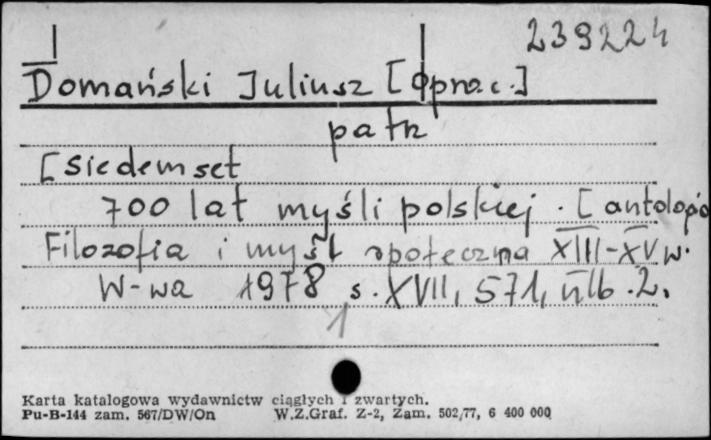 239224
Domański Juliusz [oprac.]
patrz
[Siedemset
700 lat myśli polskiej. [antologia
Filozofia i myśl społeczna XIII-XV w.
W-wa 1978 s. XVII, 571, nlb. 2.
1
Karta katalogowa wydawnictw ciągłych i zwartych.
Pu-B-144 zam. 567/DW/On W.Z.Graf. Z-2, Zam. 502/77, 6 400 000